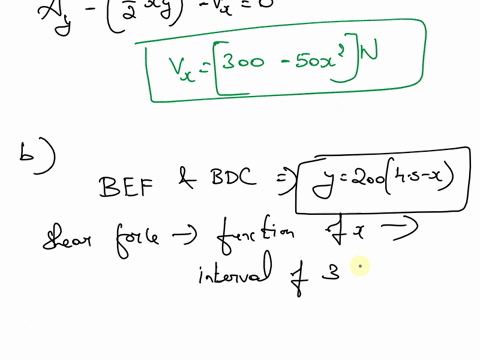 A_y - (1/2 xy) - V_x = 0
V_x = [300 - 50x²] N
b)
BEF & BDC ⇒ y = 200(4.5-x)
Shear force → function of x →
interval of 3